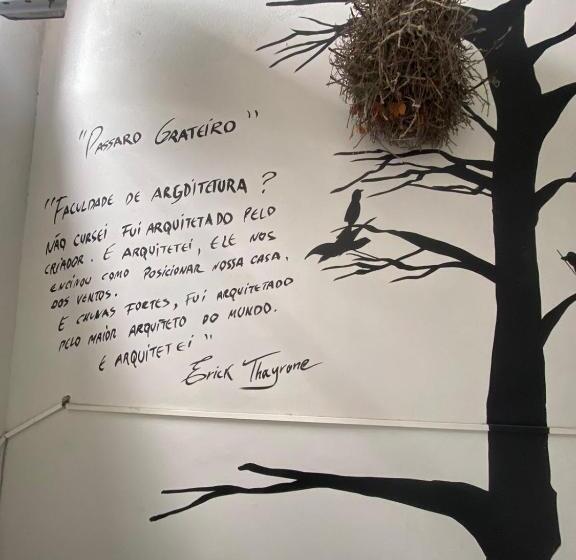 "PASSARO GRATEIRO"
"FACULDADE DE ARGDITETURA ?
NÃO CURSEI FUI ARQUITETADO PELO
CRIADOR. E ARQUITETEI, ELE NOS
ENCINOU COMO POSICIONAR NOSSA CASA.
DOS VENTOS.
E CHUVAS FORTES, FUI ARQUITETADO
PELO MAIOR ARQUITETO DO MUNDO.
E ARQUITETEI"
Erick Thayrone